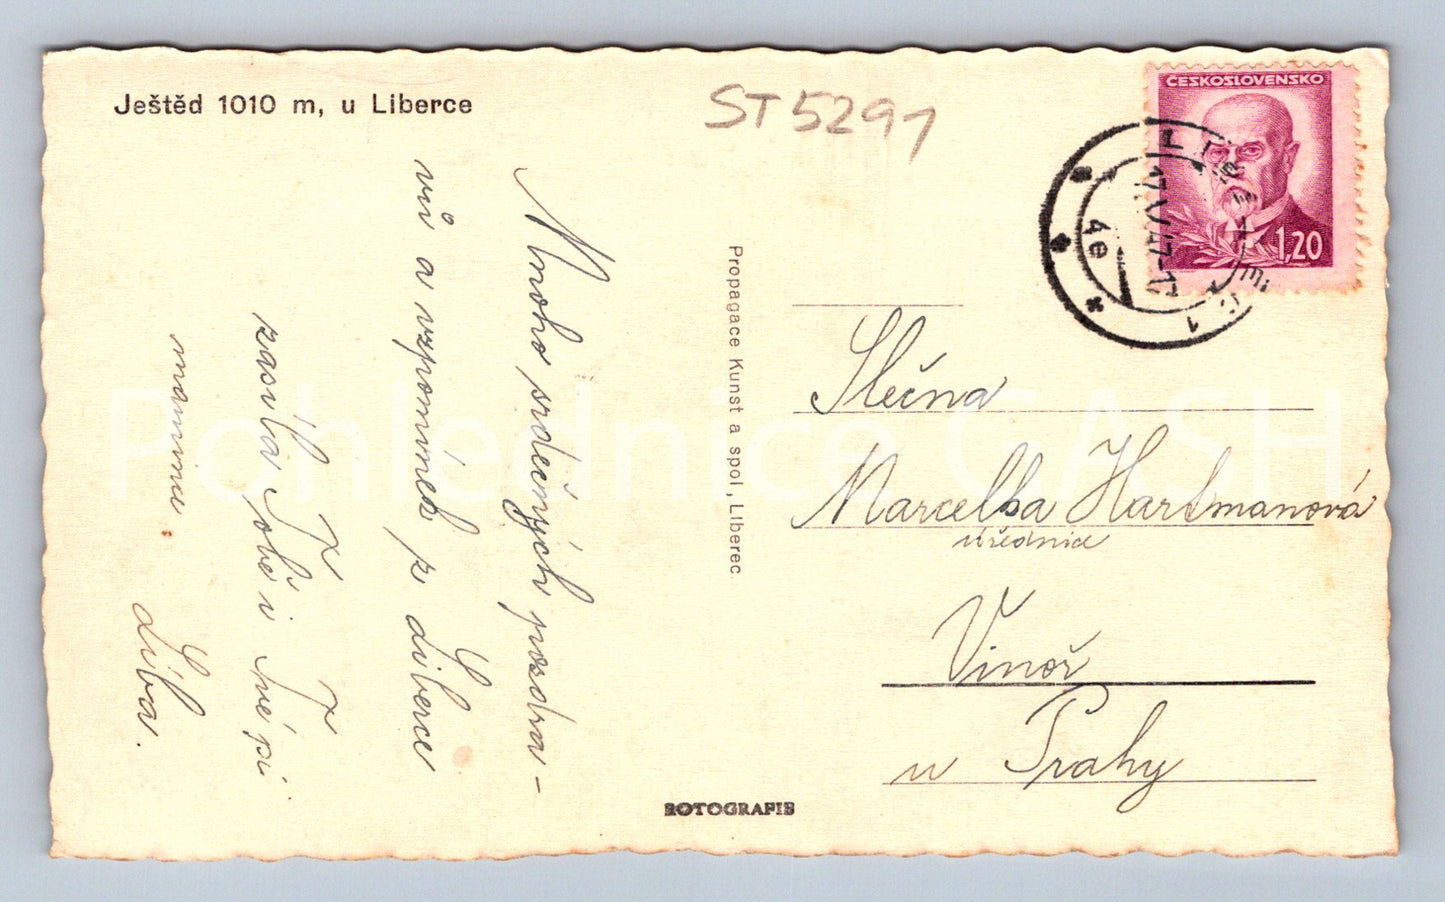 Ještěd 1010 m, u Liberce
ST 5291
ČESKOSLOVENSKO
1,20
17.V.47-17
4e
1
Mnoho srdečných pozdra-
vů a vzpomínek z Liberce
zasílá Tobě i Tvé pí
mamince
Líba.
Propagace Kunst a spol., Liberec
Slečna
Marcelka Hartmanová
úřednice
Vinoř
u Prahy
ROTOGRAFIE
Pohlednice GASH